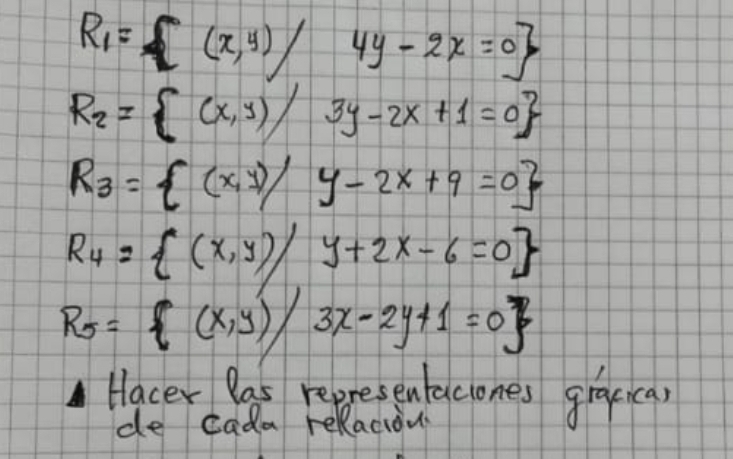 R1 = { (x,y) / 4y - 2x = 0}
R2 = { (x,y) / 3y - 2x + 1 = 0}
R3 = { (x,y) / y - 2x + 9 = 0}
R4 = { (x,y) / y + 2x - 6 = 0}
R5 = { (x,y) / 3x - 2y + 1 = 0}
Hacer las representaciones gráficas
de cada relación.